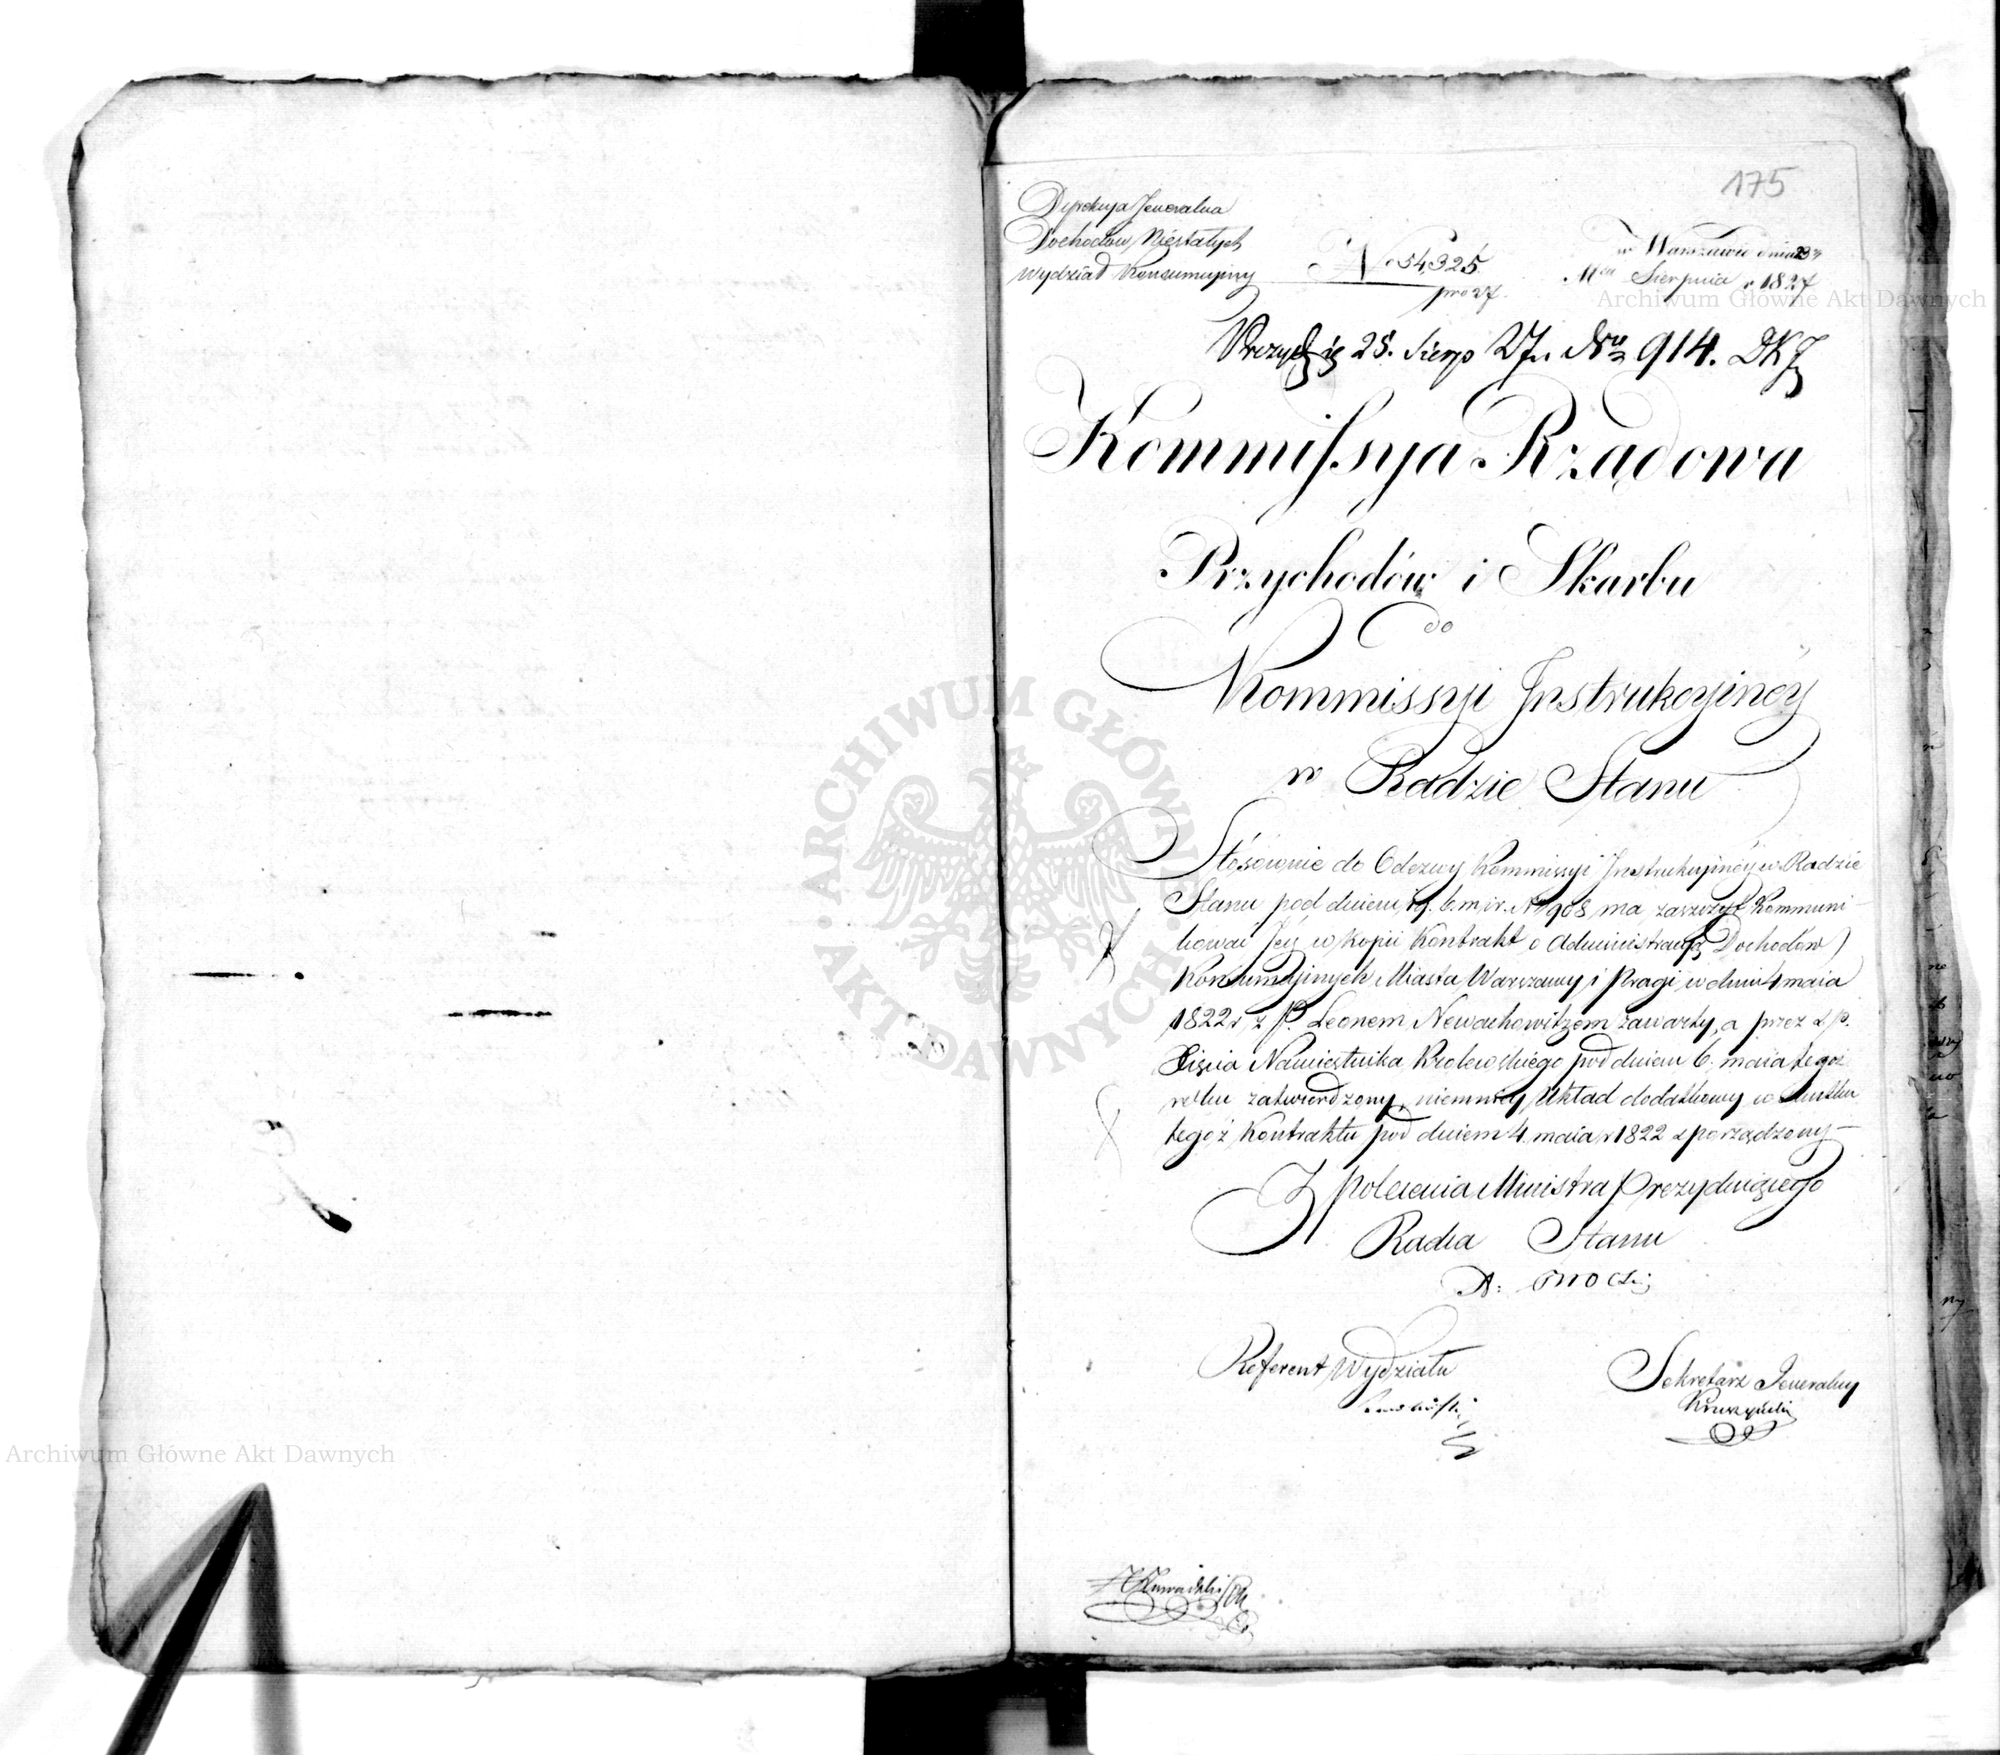 175
Dyrekcya Jeneralna
Dochodów Niestałych
Wydział Konsumcyiny
No 54,325.
pro 27.
w Warszawie dnia 23
Mca Sierpnia r 1827
25. Sierp 27 r. Nro 914. DKJ
Kommissya Rządowa
Przychodów i Skarbu
do
Kommissyi Instrukcyinéy
w Radzie Stanu
Stósownie do Odezwy Kommissyi Instrukcyinéy w Radzie
Stanu pod dniem 19. b. m. i r. No 908 ma zaszczyt Kommuni-
kować Jéy w Kopii Kontrakt o Administracyą Dochodów
Konsumcyinych Miasta Warszawy i Pragi w dniu 4 maia
1822 r. z P. Leonem Newachowitzem zawarty, a przez ś. p.
Xięcia Namiestnika Królewskiego pod dniem 6. maia tegoż
roku zatwierdzony, niemniey Układ dodatkowy w skutku
tegoż Kontraktu pod dniem 4 maia r 1822 sporządzony —
Z polecenia Ministra Prezyduiącego
Radca Stanu
Referent Wydziału
Sekretarz Jeneralny
Kruszyński
Archiwum Główne Akt Dawnych
Archiwum Główne Akt Dawnych
ARCHIWUM GŁÓWNE AKT DAWNYCH